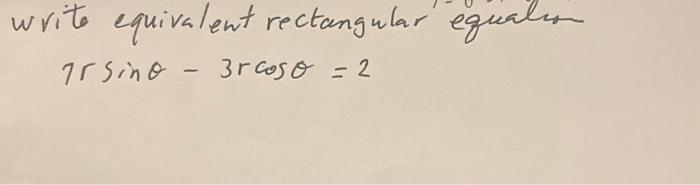 write equivalent rectangular equation
7r sinθ - 3r cosθ = 2